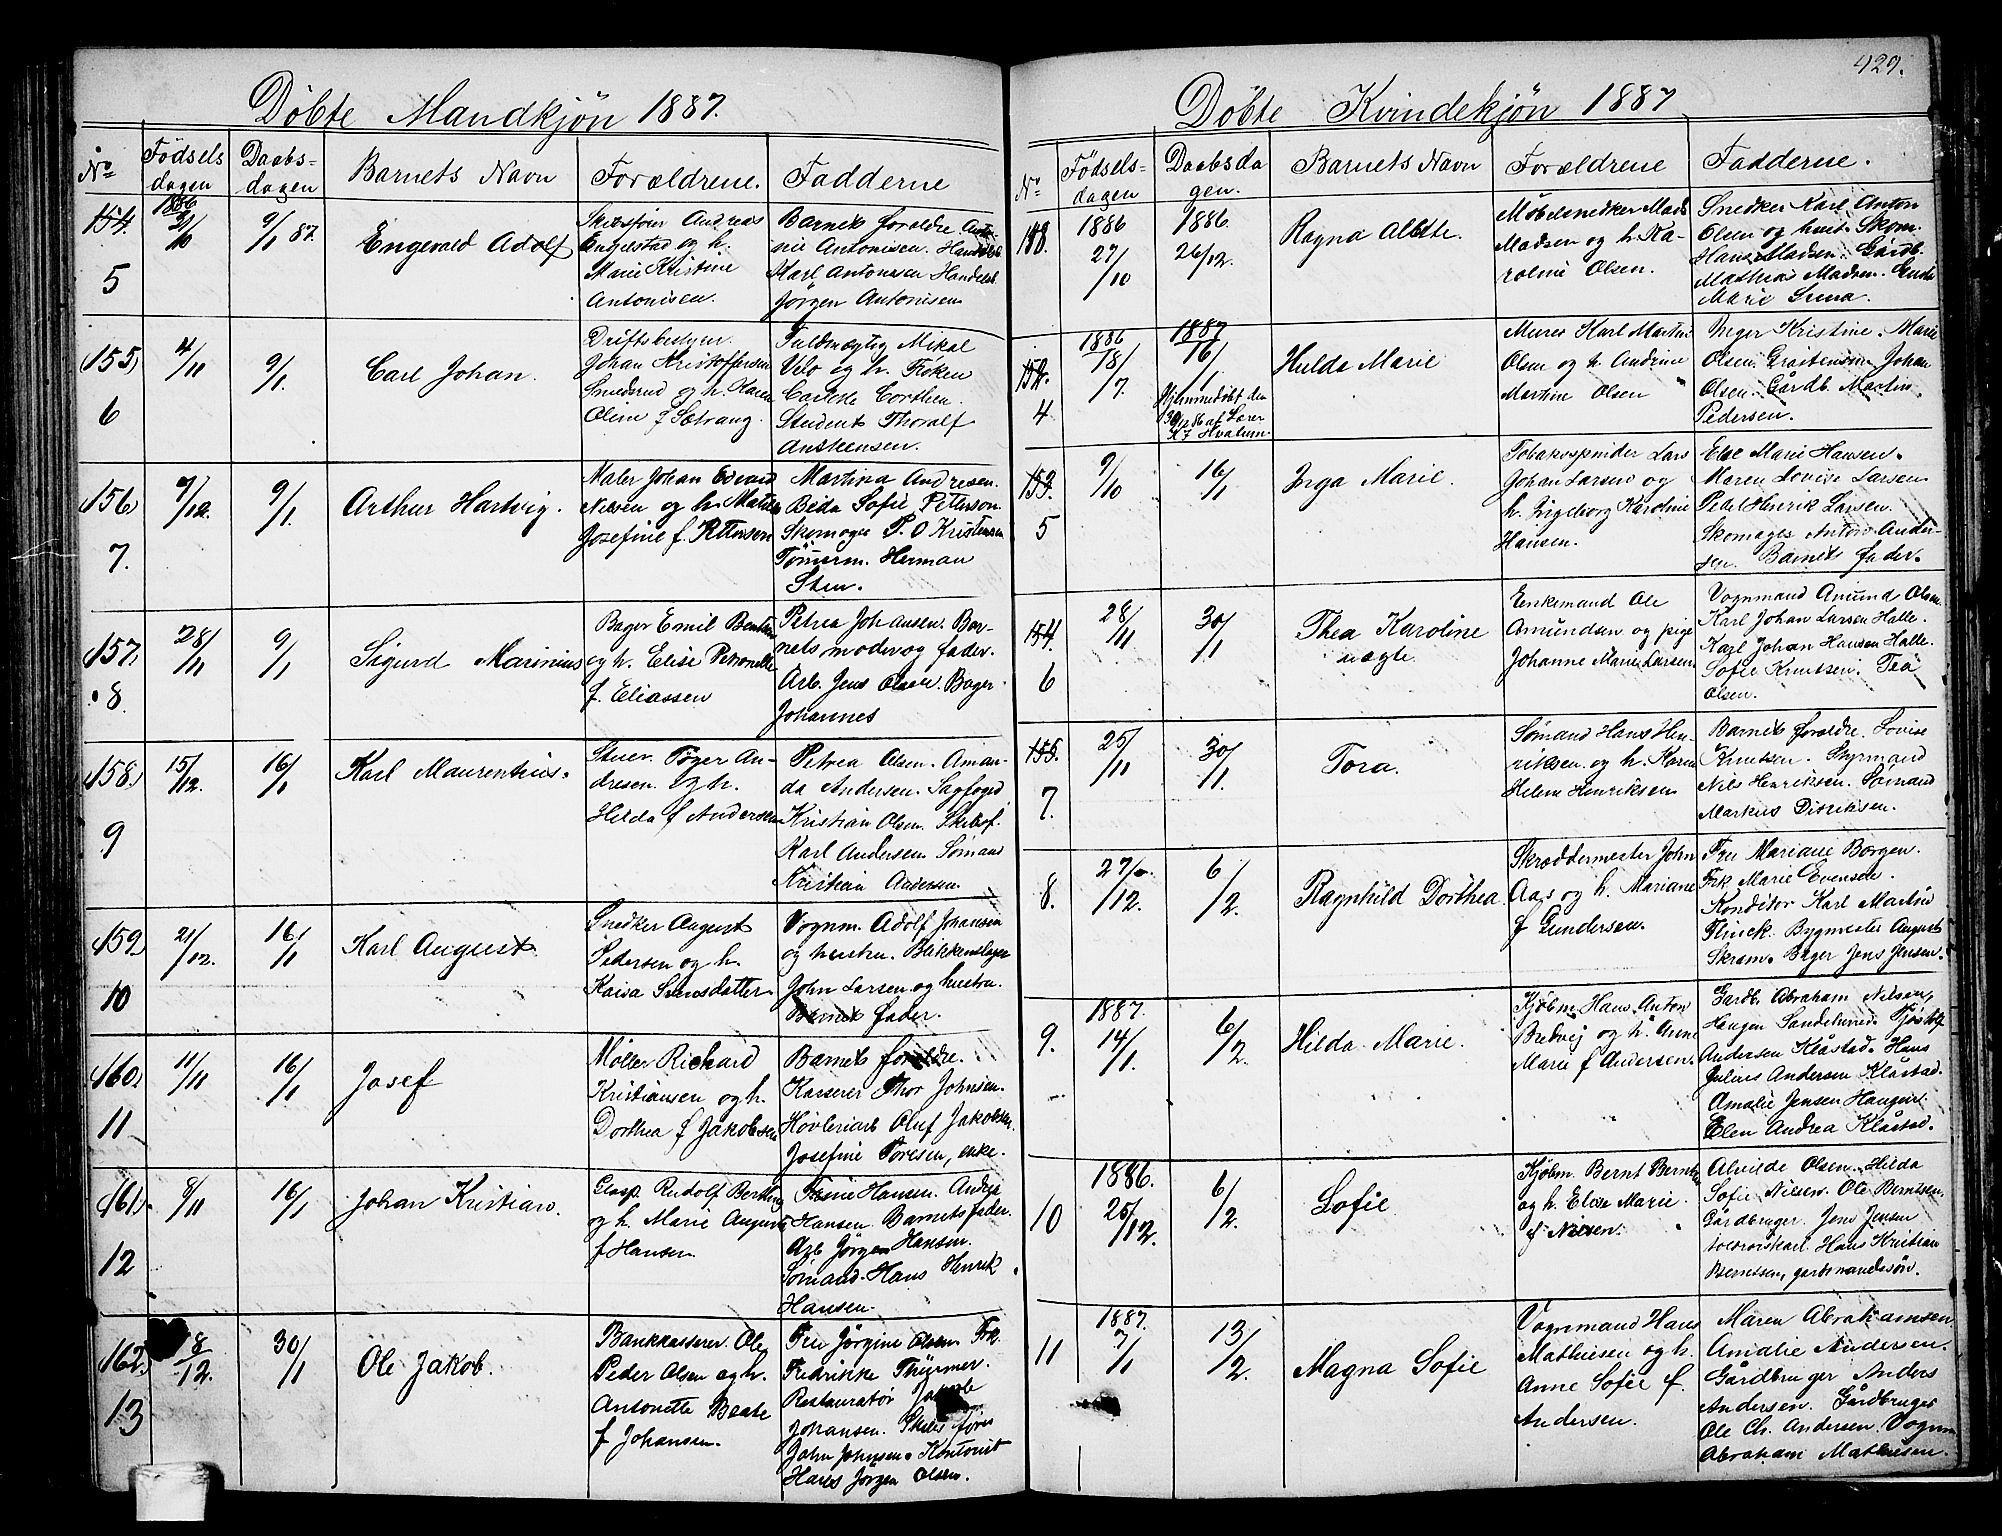 429.
Döbte Mandkjön 1887.
No
Födsels
dagen
Daabs-
dagen
Barnets Navn
Forældrene.
Fadderne
154.
5
1886
2/10
9/1 87.
Engevald Adolf
Skibsfører Andreas
Engelstad og h.
Marie Kristine
Antonisen.
Barnets forældre
Antonisen. Handelsb.
Karl Antonisen Handelsb.
Jörgen Antonisen
155)
6
4/11
9/1.
Carl Johan.
Driftsbestyrer
Johan Kristoffersen
Smedsrud og h. Karen
Oline f. Sætrang.
Fuldmægtig Mikal
Velo og h. Fröken
Student Thoralf
Anstensen.
156)
7.
7/12.
9/1.
Arthur Hartvig.
Maler Johan Edvard
Nilsen og h. Matilde
Josefine f. Pettersen
Martina Andresen.
Beda Sofie Petterson.
Skomager P. O Kristensen
Tömmerm. Herman
Sten.
157)
8
28/11
9/1
Sigurd Marinius
Bager Emil Bentsen
og h. Elise Petronelle
f. Eliassen
Petrea Johansen. Bar-
nets moder og fader.
Arb. Jens Olsen. Bager
Johannes
158)
9
15/12.
16/1
Karl Maurentius.
Stuer. Töger An-
dresen. og h.
Hilda f Andersen
Petrea Olsen. Aman-
da Andersen. Sagfoged
Kristian Olsen. Skibsf.
Karl Andersen Sömand
Kristian Andersen.
159)
10
21/12.
16/1
Karl August
Snedker August
Pedersen og h.
Kaisa Svensdatter.
Vognm. Adolf Johansen
og hustru. Blikkenslager
John Larsen og hustru.
Barnets fader.
160)
11
11/11
16/1
Josef
Möller Richard
Kristiansen og h.
Dorthea f Jakobsen
Barnets forældre.
Karserer Thor Johnsen.
Hövleriarb Oluf Jakobsen.
Josefine Toresen, enke.
161).
12
8/11
16/1
Johan Kristian.
Glasp. Rudolf Bertling
og h. Marie Auguste
f Hansen.
Tinie Hansen. Andrea
Hansen. Barnets fader.
Arb Jörgen Hansen.
Sömand. Hans Henrik
Hansen.
162)
13
8/12.
30/1
Ole Jakob.
Bankkasserer. Ole
Peder Olsen og h.
Antonette Beate
f Johansen.
Fru Jörgine Olsen. Frk.
Fredrikke Thürmer.
Restauratör Jakob
Johansen. Skibsförer
John Johnsen. Kontorist
Hans Jörgen Olsen.
Döbte Kvindekjön 1887
No.
Födsels-
dagen
Daabsda
gen.
Barnets Navn
Forældrene
Fadderne.
1886
27/10
1886.
26/12.
Ragna Alette.
Möbelsnedker Mads
Madsen og h. Ka-
roline Olsen.
Snedker Karl Anton
Olsen og hust. Skom.
Hans Madsen. Gårdb.
Mathias Madsen.
Marie
152.
4
1886
18/7.
1887
16/1
Hjemmedöbt den
30/12 86 af Lærer
K J Hvatum.
Hilda Marie
Murer Karl Martin
Olsen og h. Andrine
Martine Olsen
Inger Kristine. Marie
Olsen. Johan
Olsen. Gårdb. Martin
Pedersen.
153.
5
9/10
16/1
Inga Marie.
Tobakspinder Lars
Johan Larsen og
h. Ingeborg Karoline
Hansen.
Else Marie Hansen.
Maren Lovise Larsen
Peder Henrik Larsen.
Skomager Anton Ander-
sen. Barnets fader.
154.
6
28/11
30/1
Thea Karoline
uægte.
Enkemand Ole
Amundsen og pige
Johanne Marie Larsen
Vognmand Amund Olsen
Karl Johan Larsen Halle.
Karl Johan Hansen Halle.
Sofie Knutsen. Tea
Olsen.
155.
7.
25/11
30/1
Tora.
Sömand Hans Hen
riksen og h. Karen
Helene Henriksen
Barnets forældre. Lovise
Knutsen. Styrmand
Nils Henriksen. Sömand
Markus Didriksen.
8.
27/12.
6/2.
Ragnhild Dorthea
Skræddermester John
Aas og h. Mariane
f Gundersen.
Fru Mariane Borgen.
Frk Marie Evensen.
Konditor Karl Martin
Flinck. Bygmester August
Skram. Bager Jens Jensen.
9.
1887.
14/1.
6/2
Hilda Marie.
Kjöbm Hans Anton
Bredvej og h. Anne
Marie f Andersen.
Gardb. Abraham Nilsen,
Haugen Sandeherred.
Andersen Klåstad. Hans
Julius Andersen Klåstad.
Amalie Jensen Haugen.
Elen Andrea Klåstad.
10
1886.
25/12.
6/2.
Sofie
Kjöbm. Bernt Berntsen
og h. Elise Marie
f. Nilsen.
Alvilde Olsen. Hilda
Sofie Nilsen. Ole Berntsen
Gårdbruger. Jens Jensen
Hans Kristian
Berntsen, gårdmandssön.
11
1887.
7/1
13/2.
Magna Sofie
Vognmand Hans
Mathiesen og h.
Anne Sofie f.
Andersen.
Maren Abrahamsen
Amalie Andersen.
Gårdbruger Anders
Andersen. Gårdbruger
Ole Ch. Andersen. Vognm
Abraham Mathiesen.